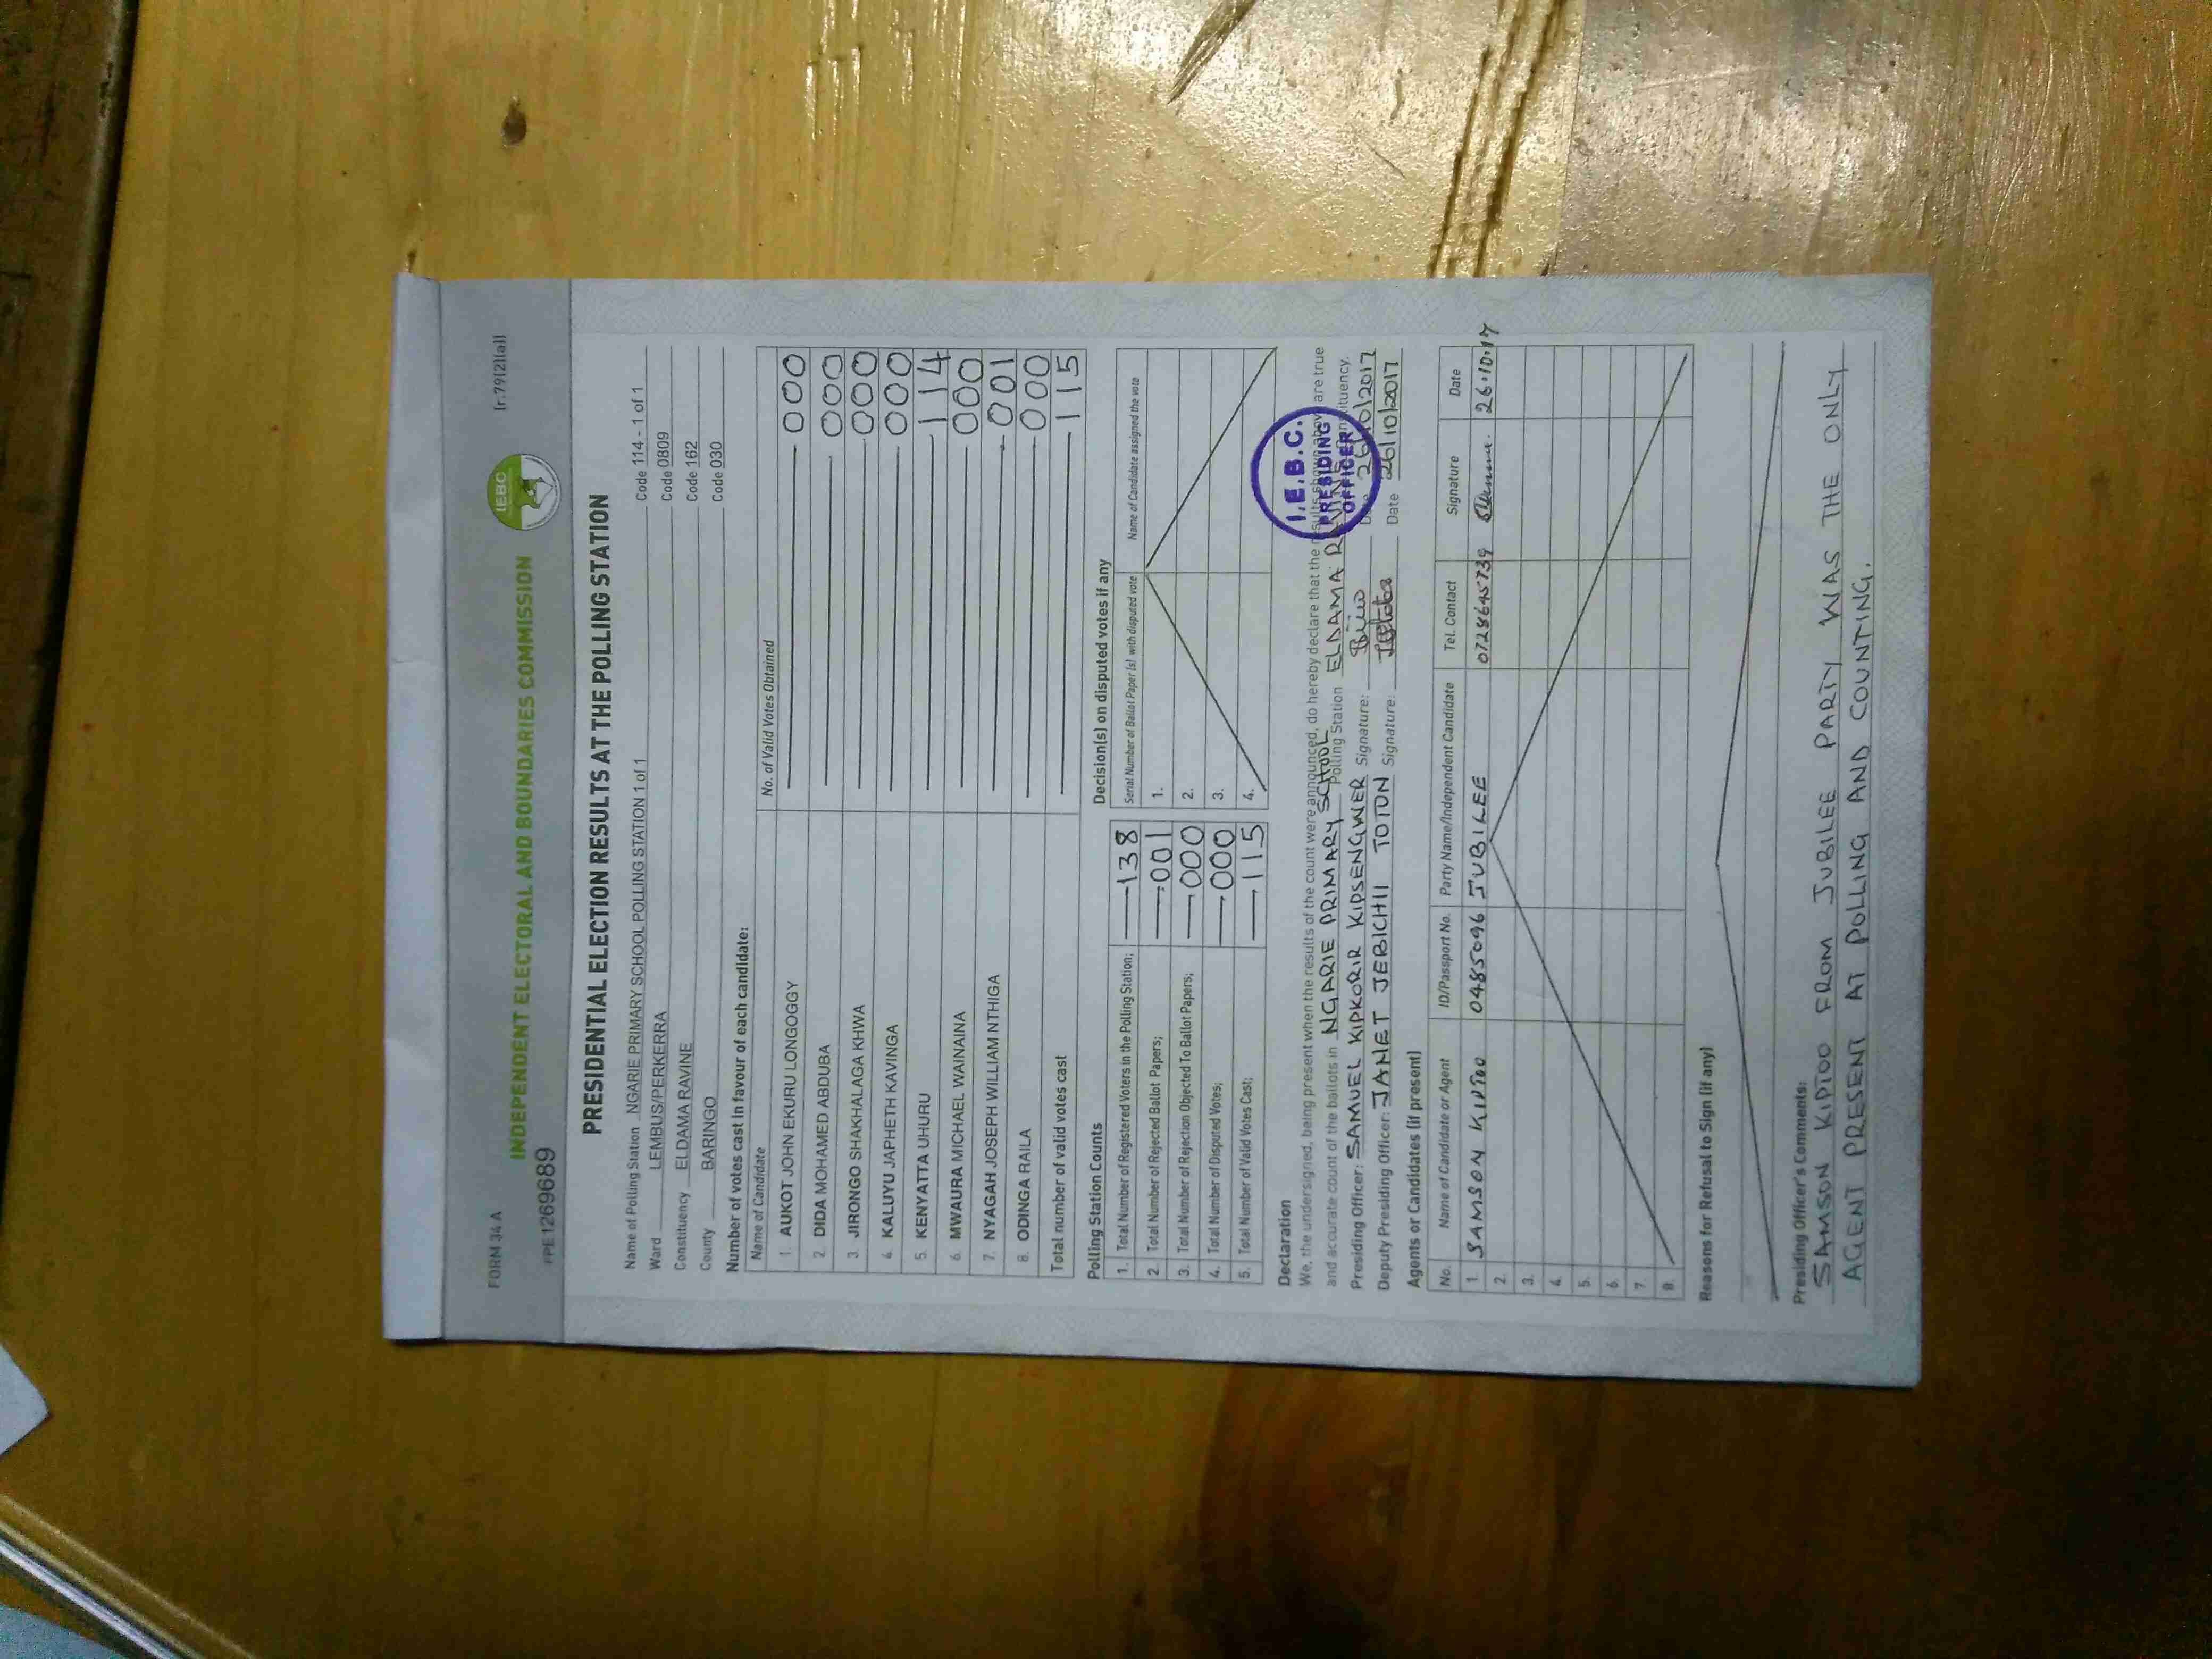 FORM 34 A
[r.79(2)(a)]
INDEPENDENT ELECTORAL AND BOUNDARIES COMMISSION
IEBC
PPE 1269689
PRESIDENTIAL ELECTION RESULTS AT THE POLLING STATION
Name of Polling Station NGARIE PRIMARY SCHOOL POLLING STATION 1 of 1 Code 114 - 1 of 1
Ward LEMBUS/PERKERRA Code 0809
Constituency ELDAMA RAVINE Code 162
County BARINGO Code 030
Number of votes cast in favour of each candidate:
Name of Candidate No. of Valid Votes Obtained
1. AUKOT JOHN EKURU LONGOGGY 000
2. DIDA MOHAMED ABDUBA 000
3. JIRONGO SHAKHALAGA KHWA 000
4. KALUYU JAPHETH KAVINGA 000
5. KENYATTA UHURU 114
6. MWAURA MICHAEL WAINAINA 000
7. NYAGAH JOSEPH WILLIAM NTHIGA 001
8. ODINGA RAILA 000
Total number of valid votes cast 115
Polling Station Counts
1. Total Number of Registered Voters in the Polling Station; 138
2. Total Number of Rejected Ballot Papers; 001
3. Total Number of Rejection Objected To Ballot Papers; 000
4. Total Number of Disputed Votes; 000
5. Total Number of Valid Votes Cast; 115
Decision(s) on disputed votes if any
Serial Number of Ballot Paper (s) with disputed vote Name of Candidate assigned the vote
1.
2.
3.
4.
Declaration
We, the undersigned, being present when the results of the count were announced, do hereby declare that the results shown above are true
and accurate count of the ballots in NGARIE PRIMARY SCHOOL Polling Station ELDAMA RAVINE Constituency.
Presiding Officer: SAMUEL KIPKORIR KIPSENGWER Signature: Date 26/10/2017
Deputy Presiding Officer: JANET JEBICHII TOTON Signature: Date 26/10/2017
I.E.B.C.
PRESIDING
OFFICER
Agents or Candidates (if present)
No. Name of Candidate or Agent ID/Passport No. Party Name/Independent Candidate Tel. Contact Signature Date
1. SAMSON KIPTOO 0485096 JUBILEE 0728645739 26.10.17
2.
3.
4.
5.
6.
7.
8.
Reasons for Refusal to Sign (if any)
Presiding Officer's Comments:
SAMSON KIPTOO FROM JUBILEE PARTY WAS THE ONLY
AGENT PRESENT AT POLLING AND COUNTING.